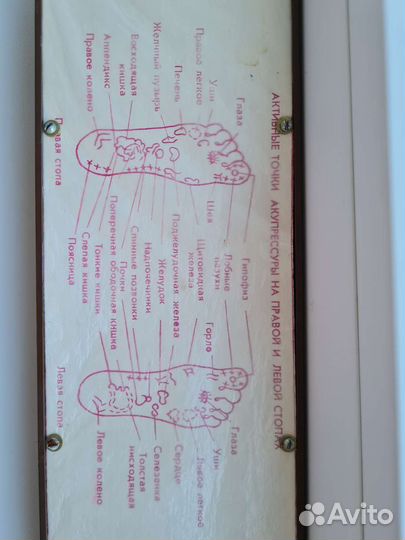 АКТИВНЫЕ ТОЧКИ АКУПРЕССУРЫ НА ПРАВОЙ И ЛЕВОЙ СТОПАХ
Глаза
Уши
Правое легкое
Печень
Желчный пузырь
Восходящая
кишка
Аппендикс
Правое колено
Правая стопа
Гипофиз
Лобные
пазухи
Шея
Щитовидная
железа
Поджелудочная железа
Желудок
Надпочечники
Спинные позвонки
Почки
Поперечная ободочная кишка
Тонкие кишки
Слепая кишка
Поясница
Горло
Глаза
Уши
Левое легкое
Сердце
Селезенка
Толстая
нисходящая
Левое колено
Левая стопа
Avito